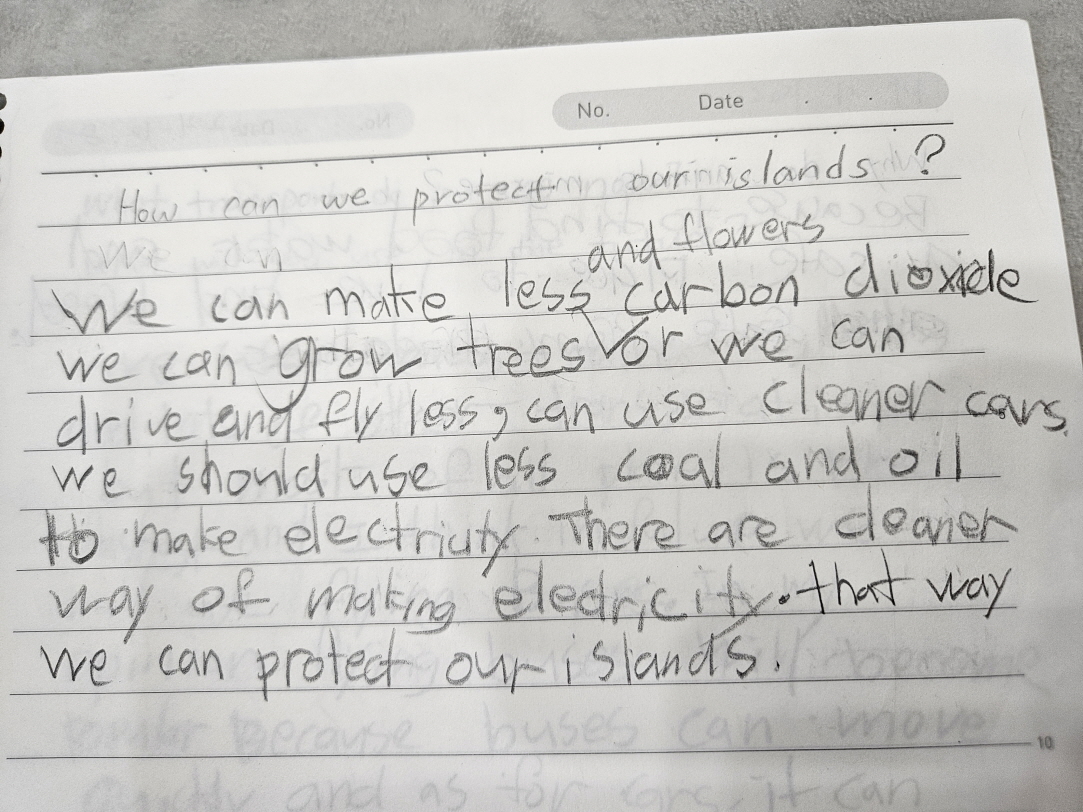 No. Date
How can we protect our islands ?
We can
and flowers
We can make less carbon dioxide
we can grow trees or we can
drive and fly less, can use cleaner cars
we should use less coal and oil
to make electricity. There are cleaner
way of making electricity. that way
we can protect our islands.
10